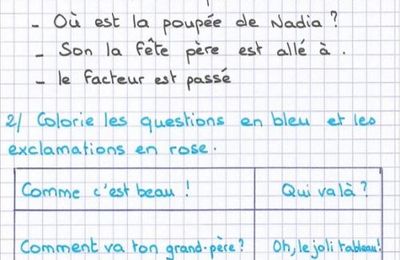 - Où est la poupée de Nadia ?
- Son la fête père est allé à .
- le facteur est passé
2/ Colorie les questions en bleu et les
exclamations en rose.
Comme c'est beau ! Qui va là ?
Comment va ton grand-père ? Oh, le joli tableau !